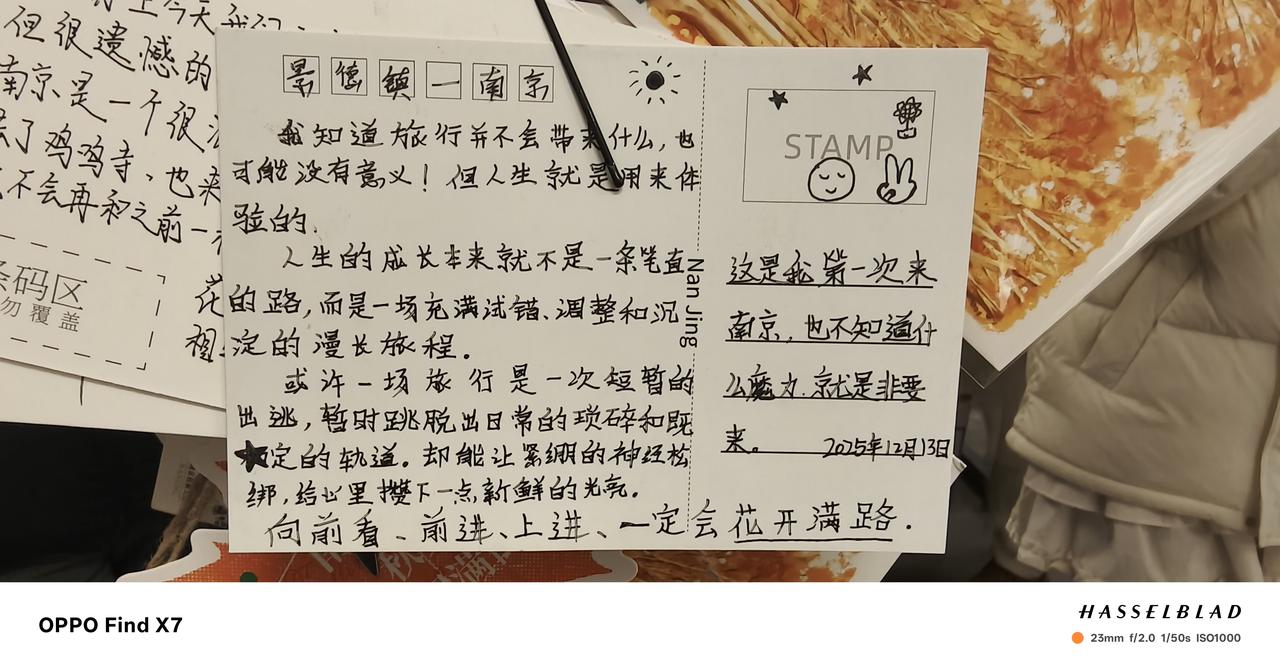 景德镇一南京
我知道旅行并不会带来什么,也
可能没有意义!但人生就是用来体
验的.
人生的成长本来就不是一条笔直
的路,而是一场充满试错、调整和沉
淀的漫长旅程。
或许一场旅行是一次短暂的
出逃,暂时跳脱出日常的琐碎和既
定的轨道。却能让紧绷的神经松
绑,给心里攒下一点新鲜的光亮。
向前看、前进、上进、一定会花开满路.
Nan Jing
STAMP
这是我第一次来
南京,也不知道什
么魔力.就是非要
来。 2025年12月13日
但很遗憾的
南京是一个很
了鸡鸣寺、也来
不会再和之前一
条码区
勿覆盖
花
OPPO Find X7
HASSELBLAD
23mm f/2.0 1/50s ISO1000